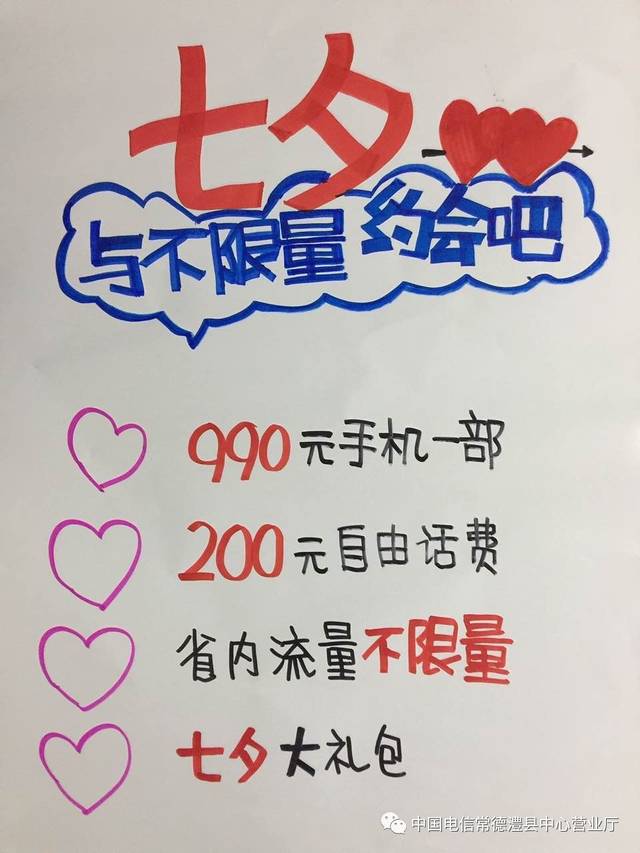 七夕
与不限量约会吧
990元手机一部
200元自由话费
省内流量不限量
七夕大礼包
中国电信常德澧县中心营业厅